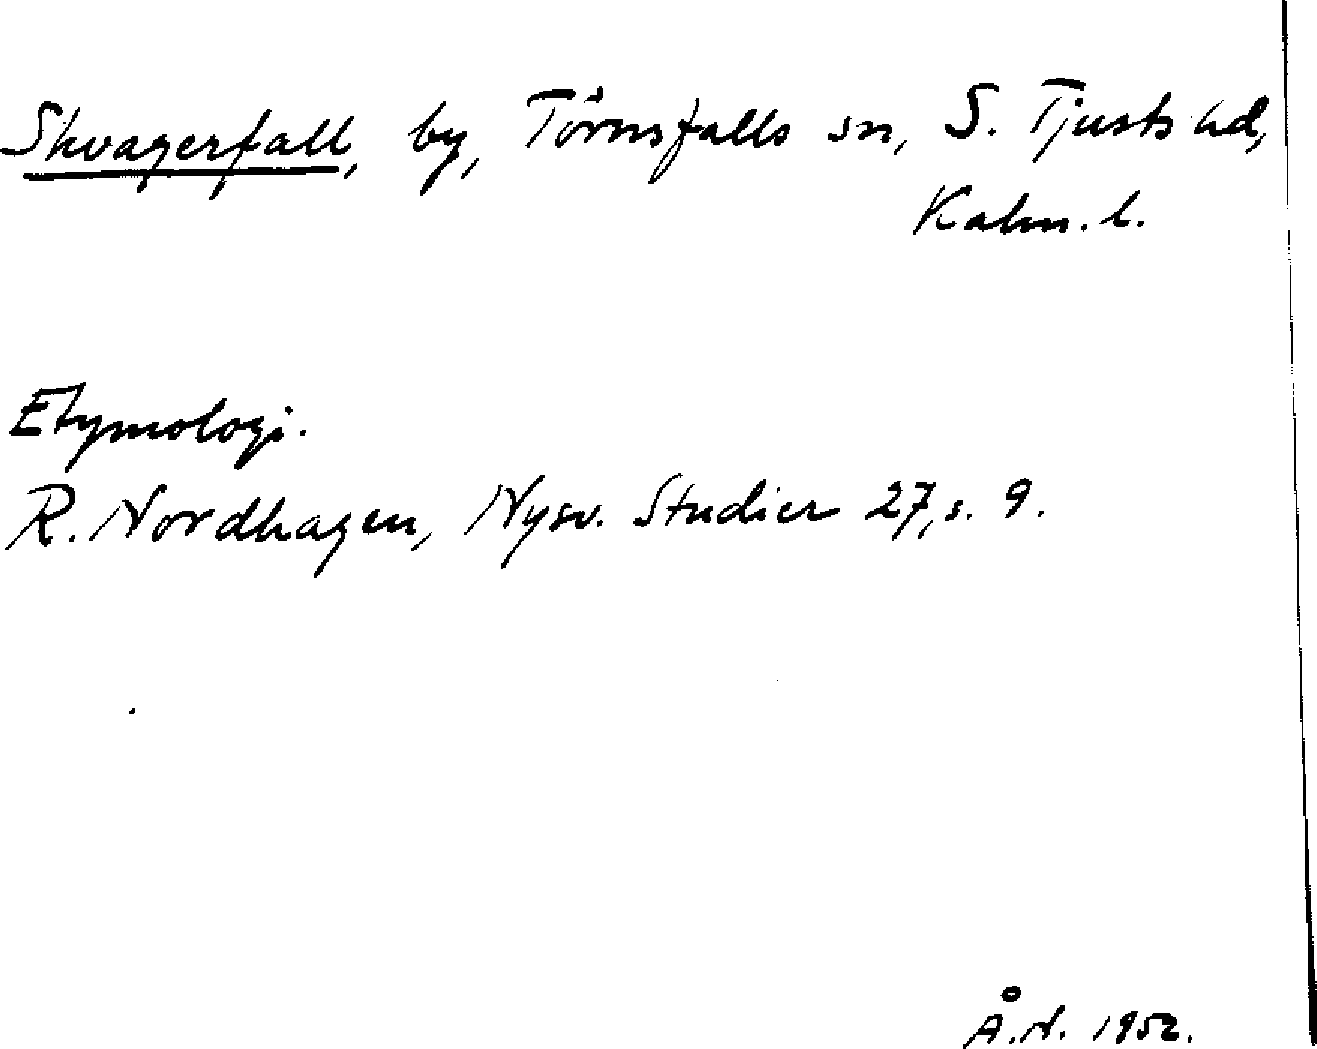 Skvagerfall, by, Törnsfalls sn, S. Tjusts hd,
Kalm. l.
Etymologi.
R. Nordhagen, Nysv. Studier 27, s. 9.
Å.N. 1952.